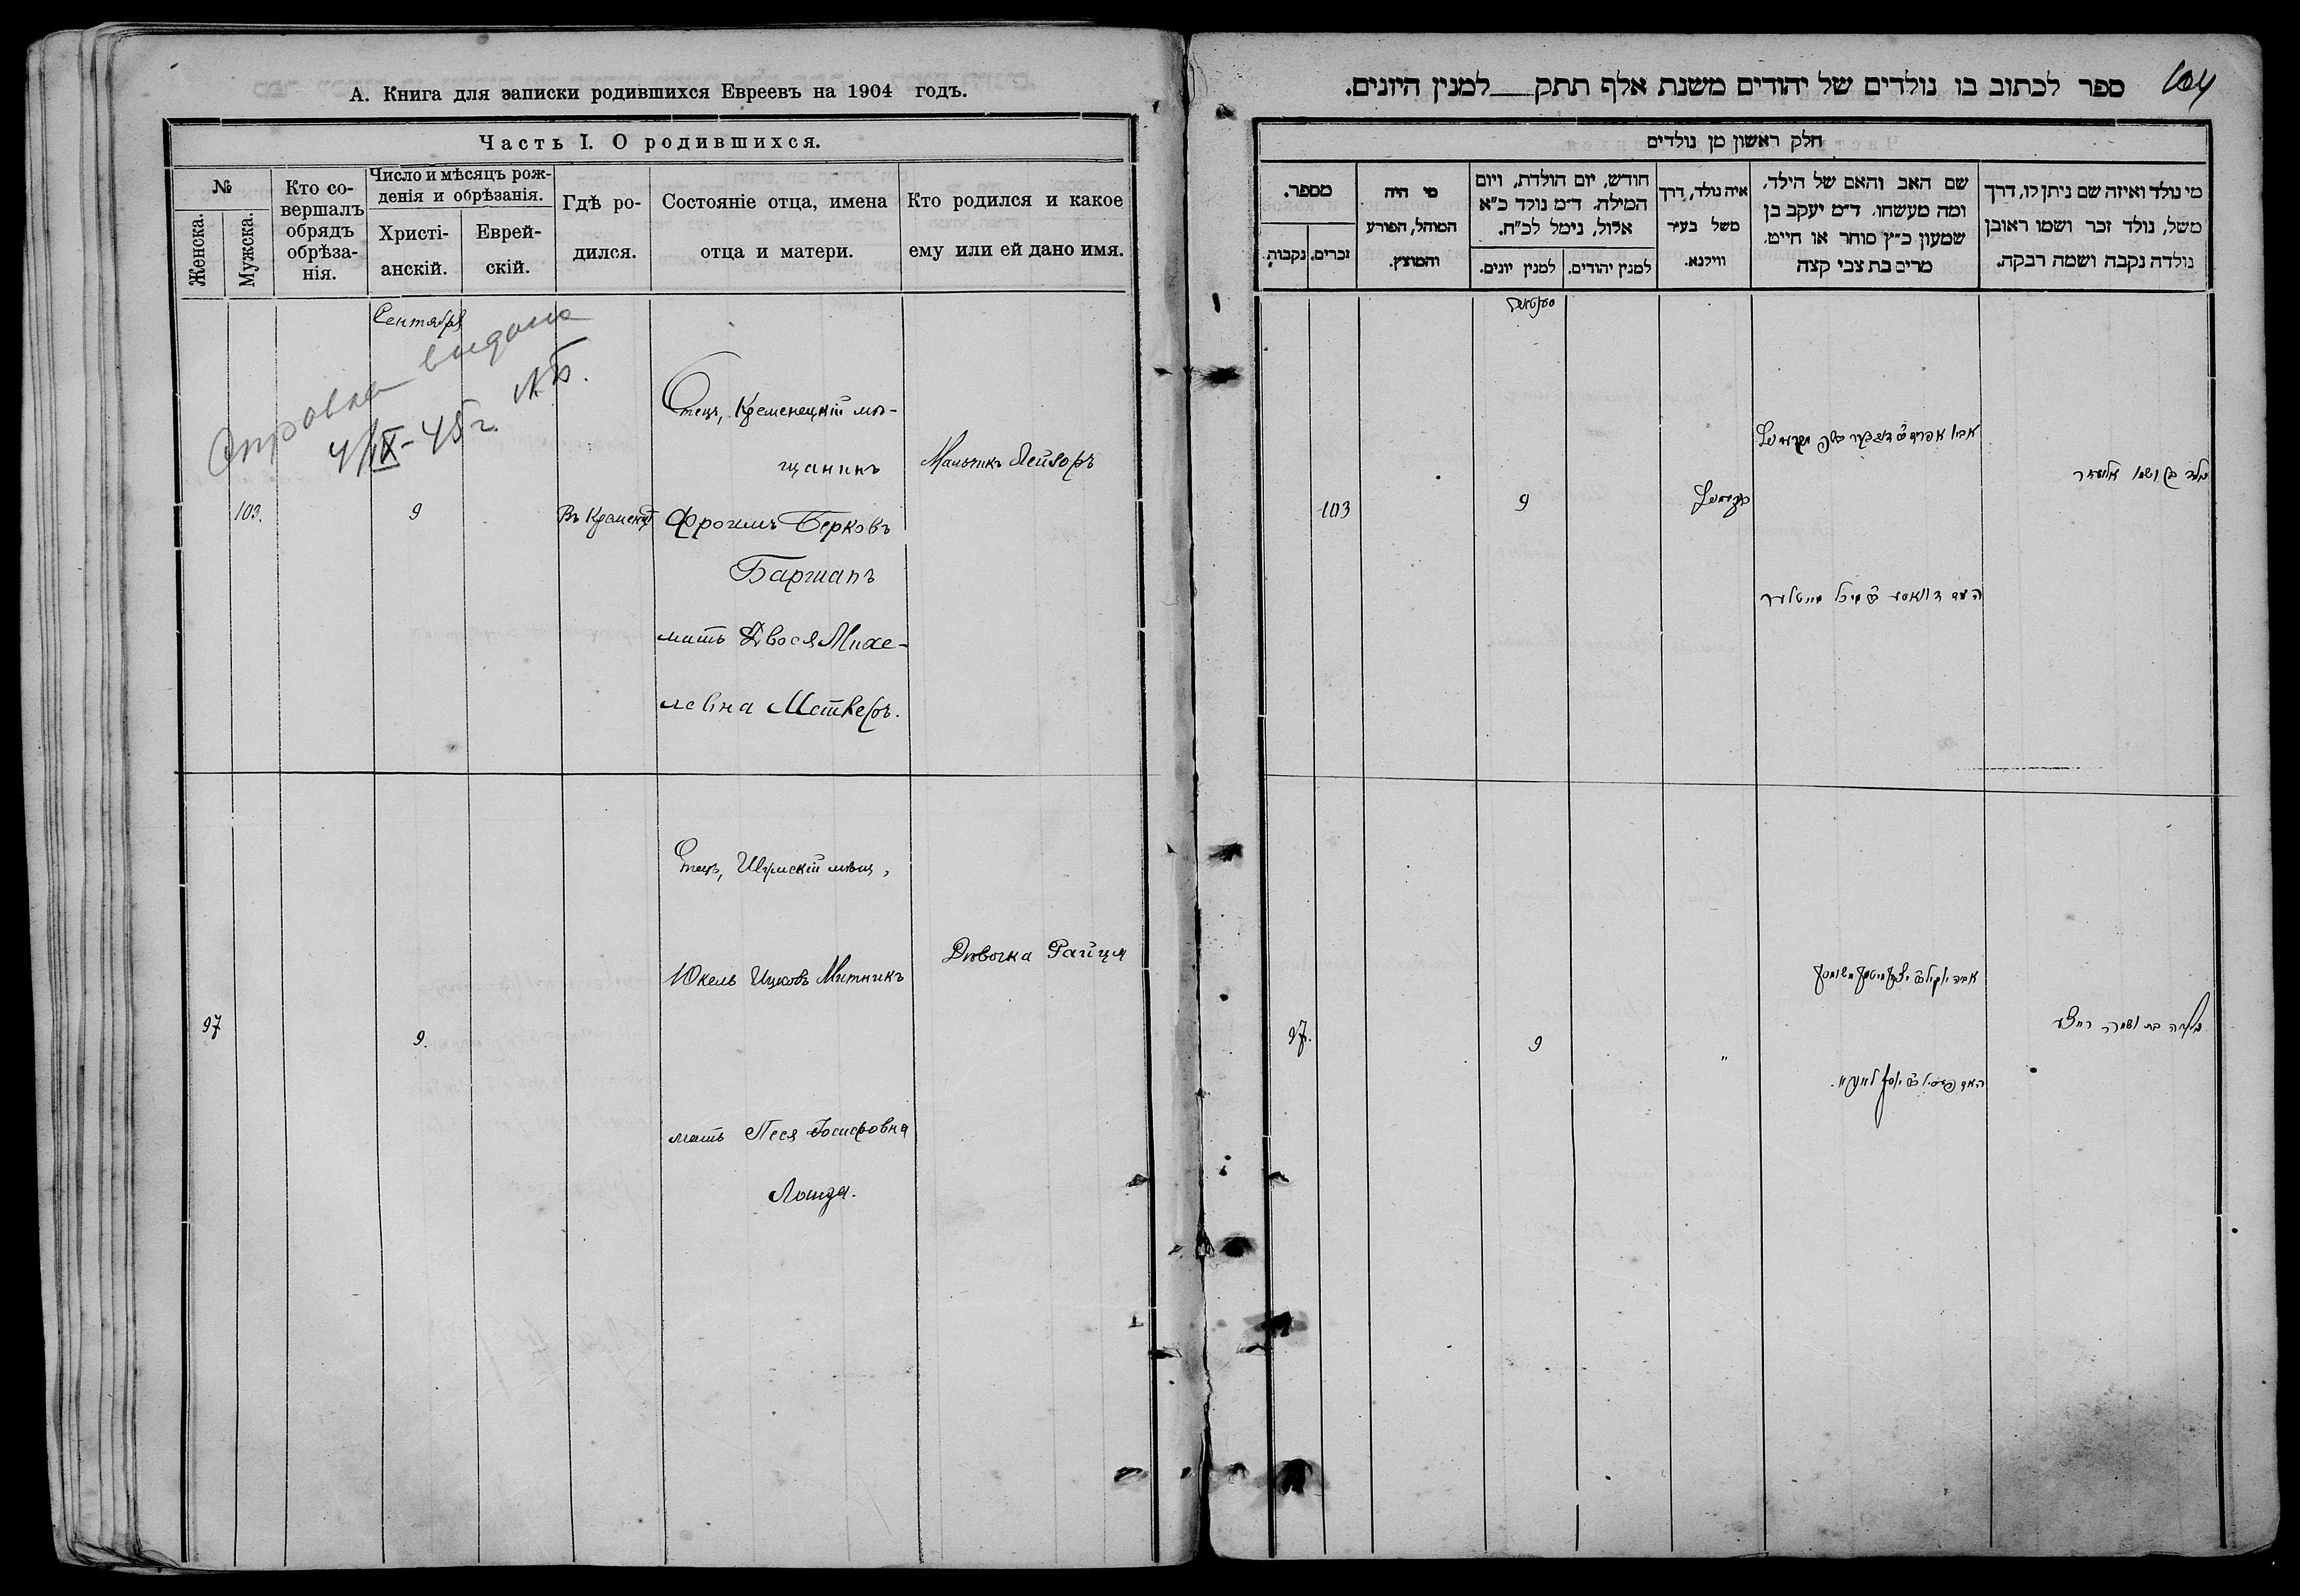 А. Книга для записки родившихся Евреевъ на 1904 годъ.
Часть I. О родившихся.
№
Женска.
Мужска.
Кто со-
вершалъ
обрядъ
обрѣза-
нія.
Число и мѣсяцъ рож-
денія и обрѣзанія.
Христі-
анскій.
Еврей-
скій.
Гдѣ ро-
дился.
Состояніе отца, имена
отца и матери.
Кто родился и какое
ему или ей дано имя.
Сентября
выдана
4/IX-45 г.
Отец, Кременецкій мѣ-
щанинъ
Мальчикъ Лейзоръ
103.
9
Въ Кременц
Фроимъ Берковъ
Баршапъ
мать Двося Михе-
левна
Отец, Шумскій мѣщ,
Юкель Ицковъ Митникъ
Дѣвочка Райця
97
9.
мать Песя Іосифовна
Ланда.
104
ספר לכתוב בו נולדים של יהודים משנת אלף תתק למנין היונים.
חלק ראשון מן נולדים
מי נולד ואיזה שם ניתן לו, דרך
משל, נולד זכר ושמו ראובן
נולדה נקבה ושמה רבקה.
שם האב והאם של הילד,
ומה מעשהו. ד״מ יעקב בן
שמעון כ״ץ סוחר או חייט.
מרים בת צבי קצה
איה נולד, דרך
משל בעיר
ווילנא.
חודש, יום הולדת, ויום
המילה. ד״מ נולד כ״א
אלול, נימל לכ״ח.
למנין יהודים.
למנין יונים.
מי היה
המוהל, הפורע
והמוצץ.
מספר.
זכרים.
נקבות.
103
9
נולד בן ושמו אליעזר
97.
9
"
נולדה בת ושמה רייצע